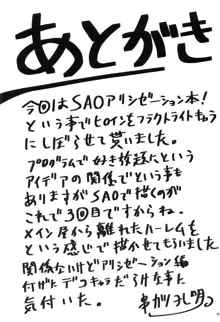 あとがき
今回はSAOアリシゼーション本!
という事でヒロインをフラクトライトキャラ
にしぼらせて貰いました。
プログラムで好き放題にという
アイデアの関係でというも
ありますがSAOで描くのが
これで3回目ですからね。
メイン所から離れたハーレムを
という感じで描かせてもらいました
関係ないけどアリシゼーション編
何げにデコキャラだらけな事に
気付いた。